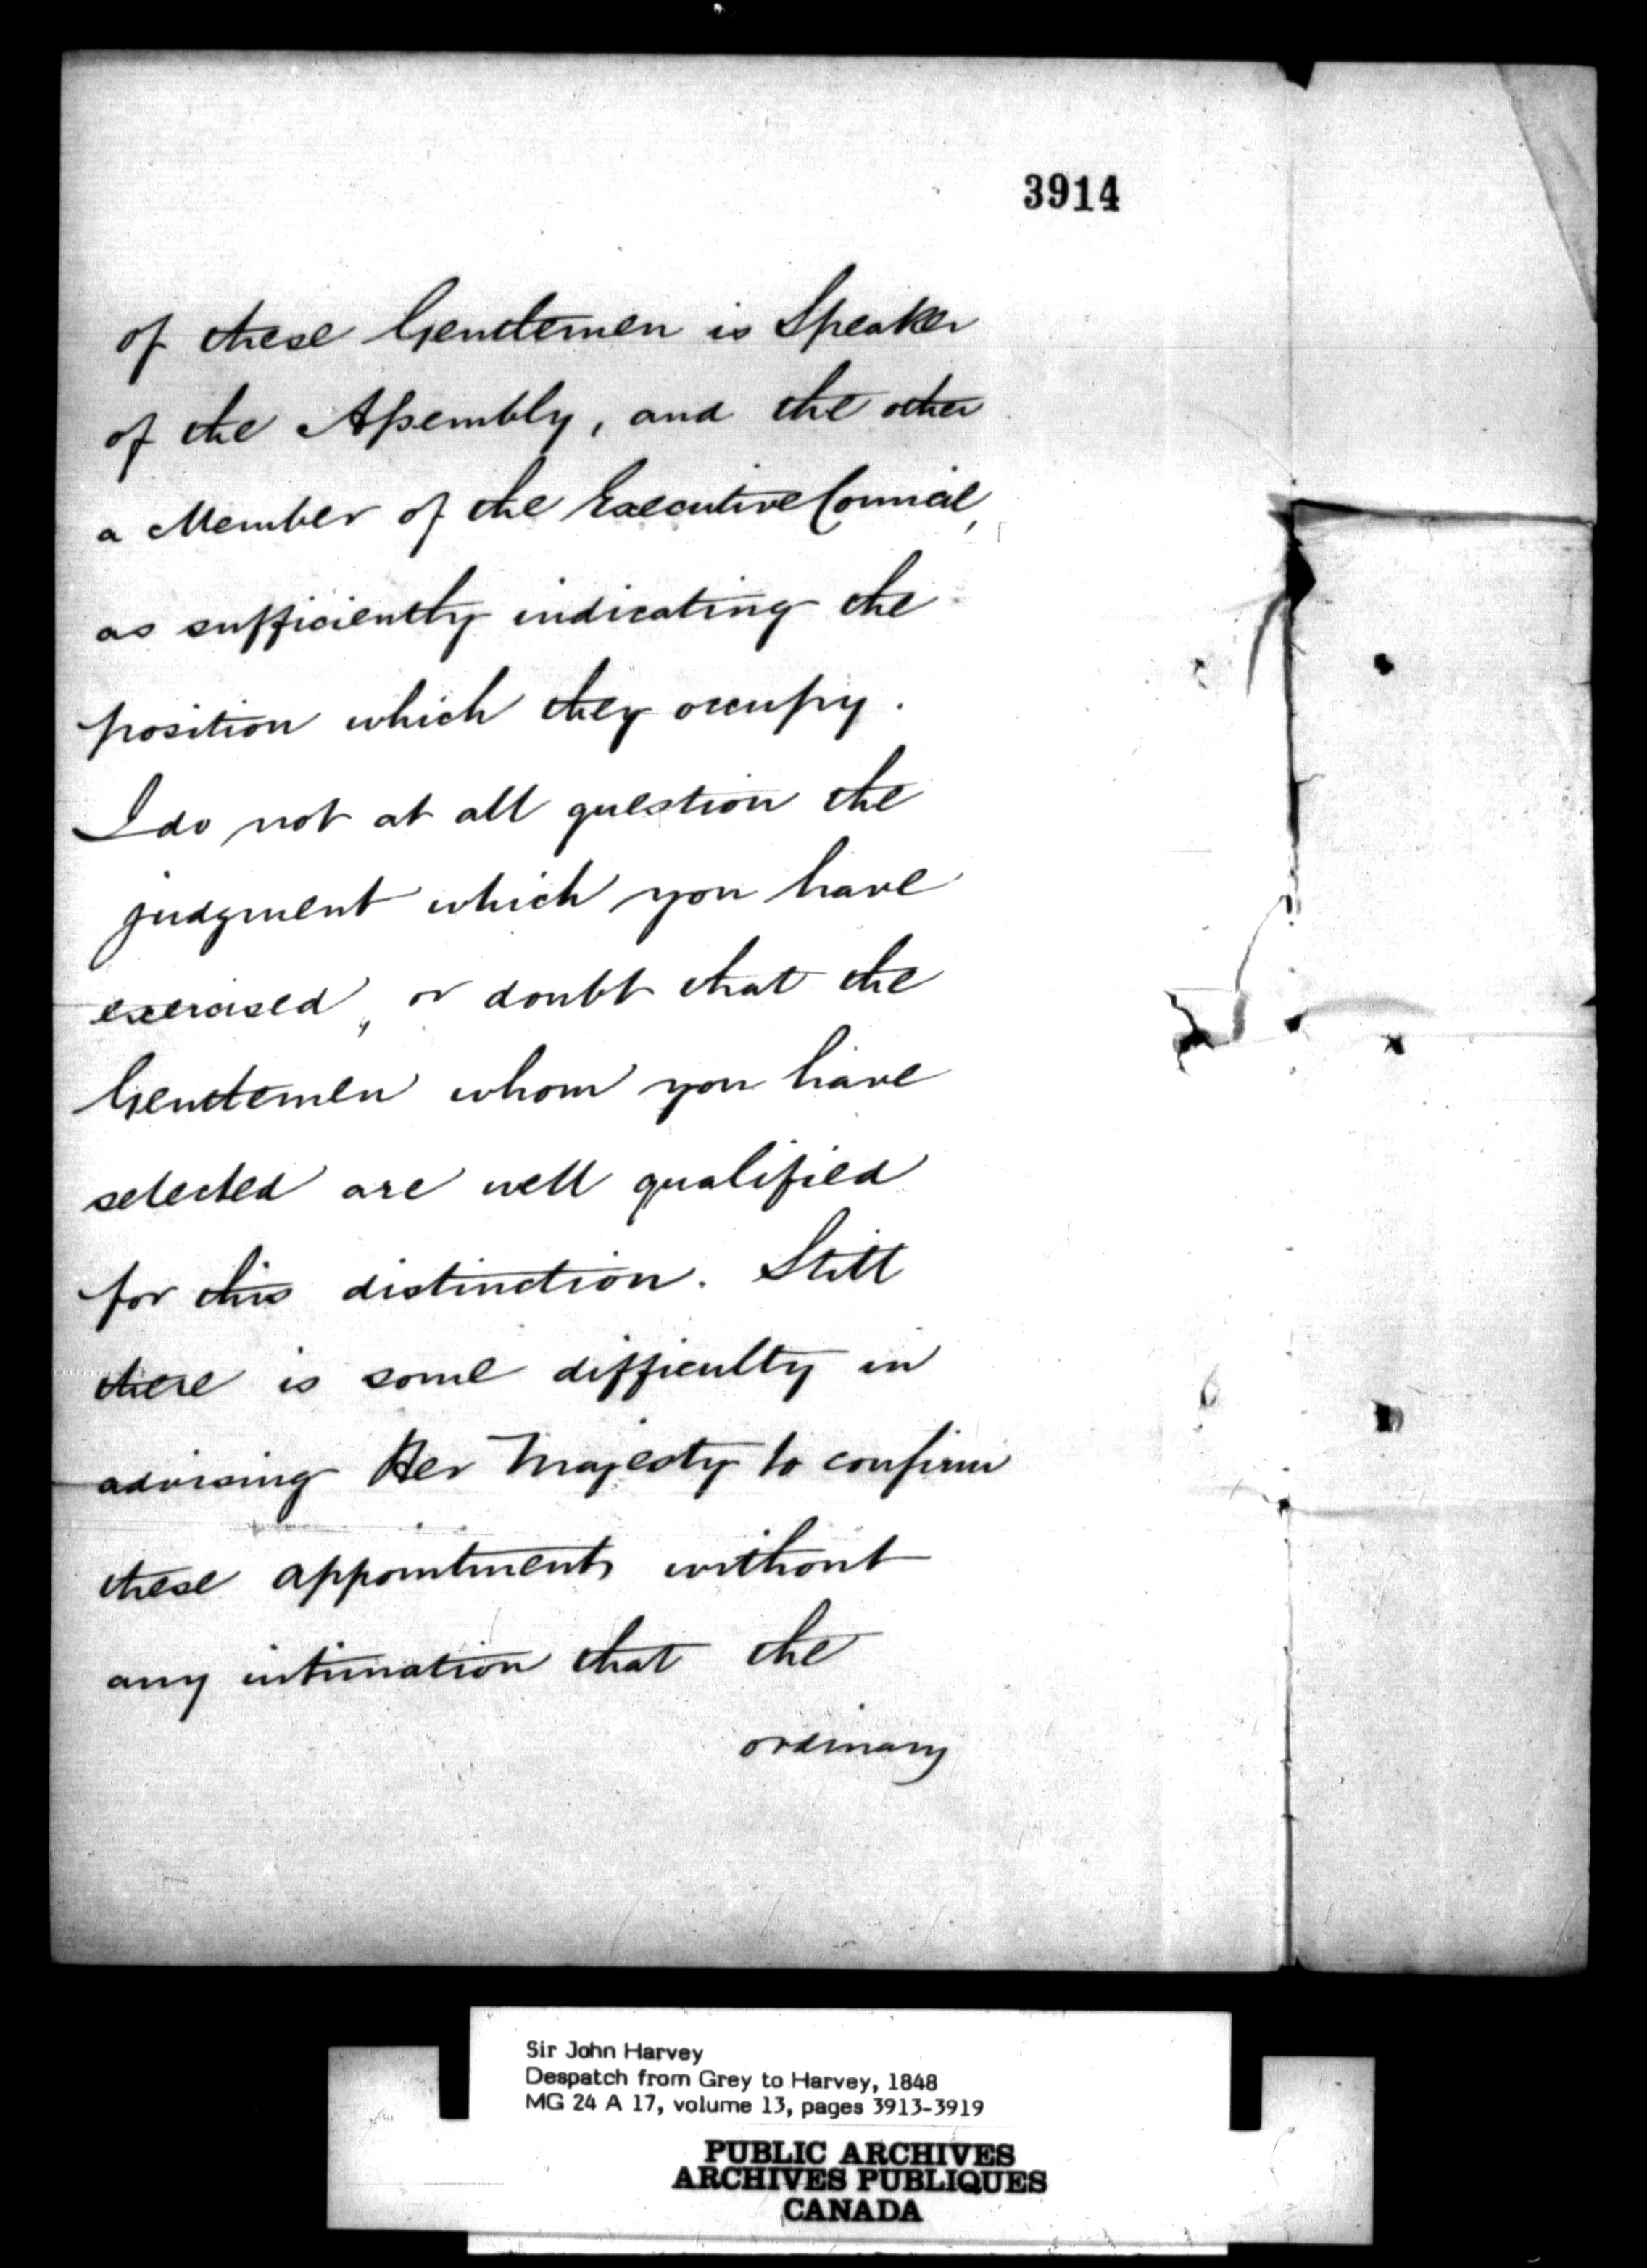 3914
of these Gentlemen is Speaker
of the Assembly, and the other
a Member of the Executive Council,
as sufficiently indicating the
position which they occupy.
I do not at all question the
judgment which you have
exercised, or doubt that the
Gentlemen whom you have
selected are well qualified
for this distinction. Still
there is some difficulty in
advising Her Majesty to confirm
these appointments without
any intimation that the
ordinary
Sir John Harvey
Despatch from Grey to Harvey, 1848
MG 24 A 17, volume 13, pages 3913-3919
PUBLIC ARCHIVES
ARCHIVES PUBLIQUES
CANADA